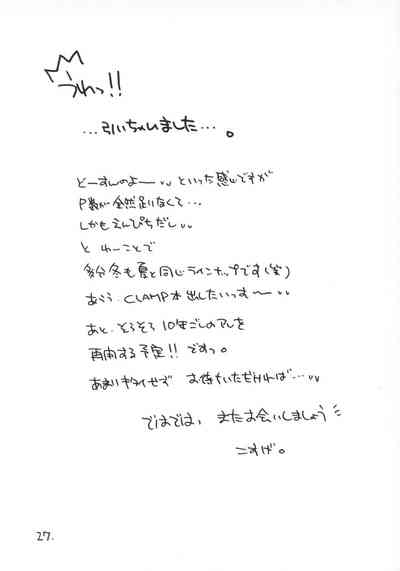 うわっ!!
…引いちゃいました…。
どーすんのよーいいといった感じですが
P数が全然足りなくて…
しかもえんぴちだしいい
と わーことで
多分冬も夏と同じラインナップです(笑)
あうう CLAMP本出したいっす〜いい
あと、そろそろ10年ごしのアレを
再開する予定!! ですっ。
あまりキタイせず お待ちいただければ…いい
ではでは、またお会いしましょう
こすげ。
27.